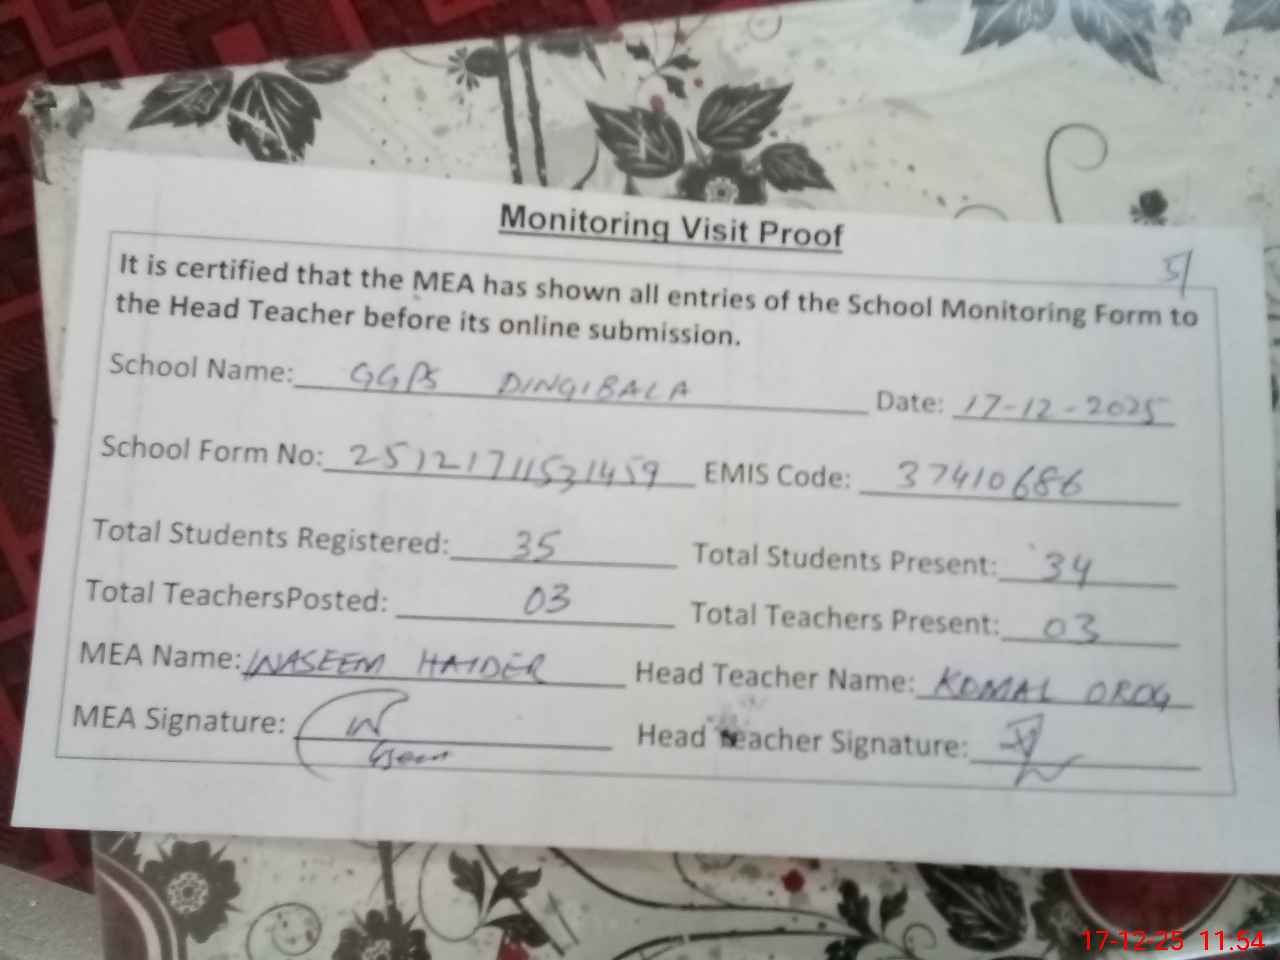 Monitoring Visit Proof
5/
It is certified that the MEA has shown all entries of the School Monitoring Form to
the Head Teacher before its online submission.
School Name: GGPS DINGIBALA Date: 17-12-2025
School Form No: 25121711531459 EMIS Code: 37410686
Total Students Registered: 35 Total Students Present: 34
Total TeachersPosted: 03 Total Teachers Present: 03
MEA Name: WASEEM HAIDER Head Teacher Name: KOMAL OROG
MEA Signature: Head Teacher Signature:
17-12-25 11:54